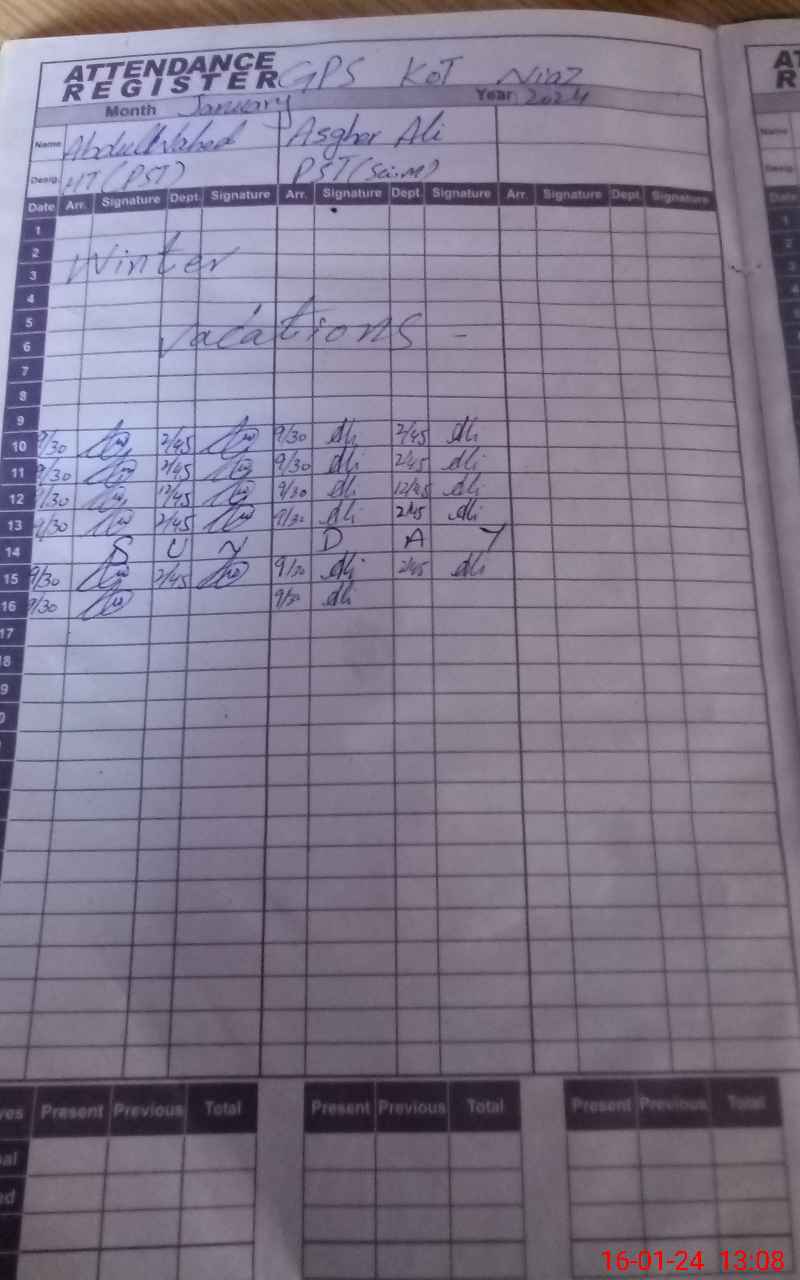 ATTENDANCE REGISTER GPS KOT Niaz
Month January Year 2024
Name Abdul Wahed Asgher Ali
Desig. HT (PST) PST (Sci.M)
Date Arr. Signature Dept. Signature Arr. Signature Dept. Signature Arr. Signature Dept. Signature
1
2 Winter
3
4
5 vacations -
6
7
8
9
10 9/30 2/45 9/30 Ali 2/45 Ali
11 9/30 2/45 9/30 Ali 2/45 Ali
12 9/30 12/45 9/30 Ali 12/45 Ali
13 9/30 2/45 9/30 Ali 2/45 Ali
14 S U N D A Y
15 9/30 2/45 9/30 Ali 2/45 Ali
16 9/30 9/30 Ali
17
8
9
0
ves Present Previous Total Present Previous Total Present Previous Total
al
ed
16-01-24 13:08